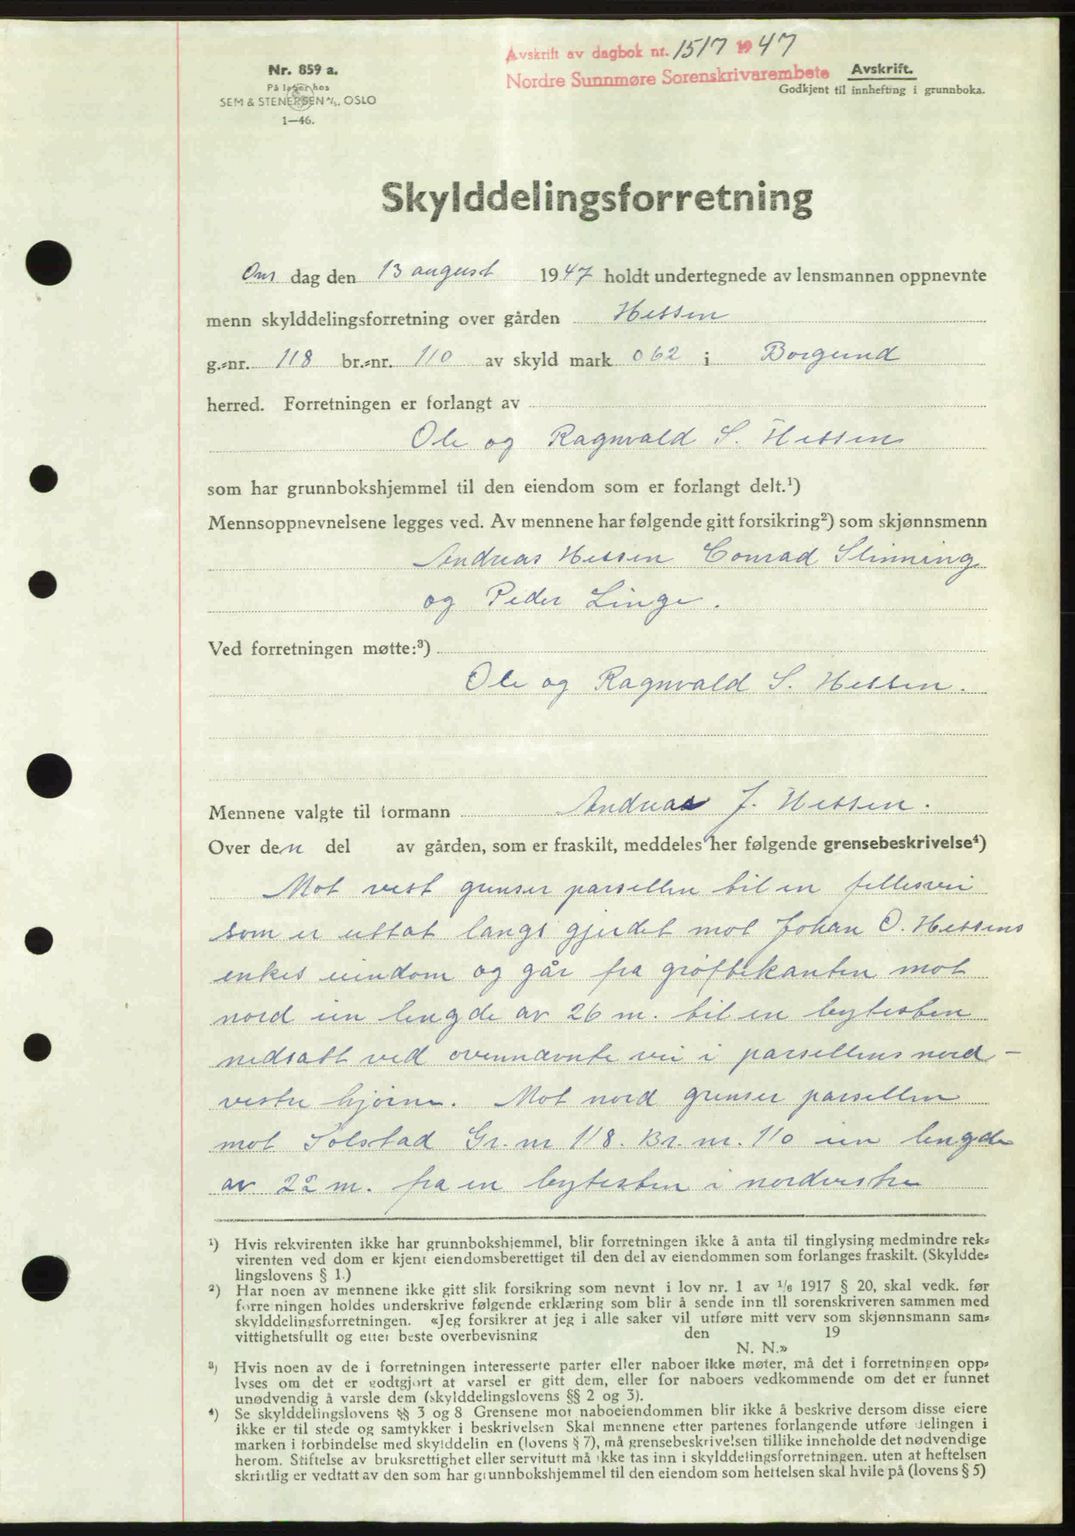 Avskrift av dagbok nr. 1517 1947
Nordre Sunnmøre Sorenskrivarembete
Nr. 859 a.
På lager hos
SEM & STENERSEN A/S, OSLO
1—46.
Avskrift.
Godkjent til innhefting i grunnboka.
Skylddelingsforretning
Ons dag den 13 august 1947 holdt undertegnede av lensmannen oppnevnte
menn skylddelingsforretning over gården Hessen
g.-nr. 118 br.-nr. 110 av skyld mark 062 i Borgund
herred. Forretningen er forlangt av
Ole og Ragnvald S. Hessen
som har grunnbokshjemmel til den eiendom som er forlangt delt.¹)
Mennsoppnevnelsene legges ved. Av mennene har følgende gitt forsikring²) som skjønnsmenn
Andreas Hessen Conrad Slinning
og Peder Linge.
Ved forretningen møtte:³)
Ole og Ragnvald S. Hessen.
Mennene valgte til formann Andreas J. Hessen.
Over den del av gården, som er fraskilt, meddeles her følgende grensebeskrivelse⁴)
Mot vest grenser parsellen til en fellesvei
som er uttat langs gjerdet mot Johan O. Hessens
enkes eiendom og går fra grøftekanten mot
nord i en lengde av 26 m. til en bytesten
nedsatt ved ovennævnte vei i parsellens nord-
vestre hjørne. Mot nord grenser parsellen
mot Solstad Gr. nr 118. Br. nr. 110 i en lengde
av 22 m. fra en bytesten i nordvestre
¹) Hvis rekvirenten ikke har grunnbokshjemmel, blir forretningen ikke å anta til tinglysing medmindre rek-
virenten ved dom er kjent eiendomsberettiget til den del av eiendommen som forlanges fraskilt. (Skyldde-
lingslovens § 1.)
²) Har noen av mennene ikke gitt slik forsikring som nevnt i lov nr. 1 av 1/6 1917 § 20, skal vedk. før
forretningen holdes underskrive følgende erklæring som blir å sende inn til sorenskriveren sammen med
skylddelingsforretningen. «Jeg forsikrer at jeg i alle saker vil utføre mitt verv som skjønnsmann sam-
vittighetsfullt og etter beste overbevisning den 19
N. N.»
³) Hvis noen av de i forretningen interesserte parter eller naboer ikke møter, må det i forretningen opp-
lyses om det er godtgjort at varsel er gitt dem, eller for naboers vedkommende om det er funnet
unødvendig å varsle dem (skylddelingslovens §§ 2 og 3).
⁴) Se skylddelingslovens §§ 3 og 8 Grensene mot naboeiendommen blir ikke å beskrive dersom disse eiere
ikke er til stede og samtykker i beskrivelsen Skal mennene etter partenes forlangende utføre delingen i
marken i forbindelse med skylddelingen (lovens § 7), må grensebeskrivelsen tillike inneholde det nødvendige
herom. Stiftelse av bruksrettighet eller servitutt må ikke tas inn i skylddelingsforretningen, uten at heftelsen
skriftlig er vedtatt av den som har grunnbokshjemmel til den eiendom som heftelsen skal hvile på (lovens § 5)